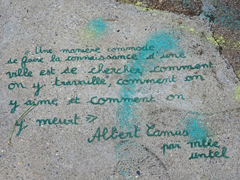 "Une manière commode
de faire la connaissance d'une
ville est de chercher comment
on y travaille, comment on
y aime et comment on
y meurt »
Albert Camus
par mlle
untel